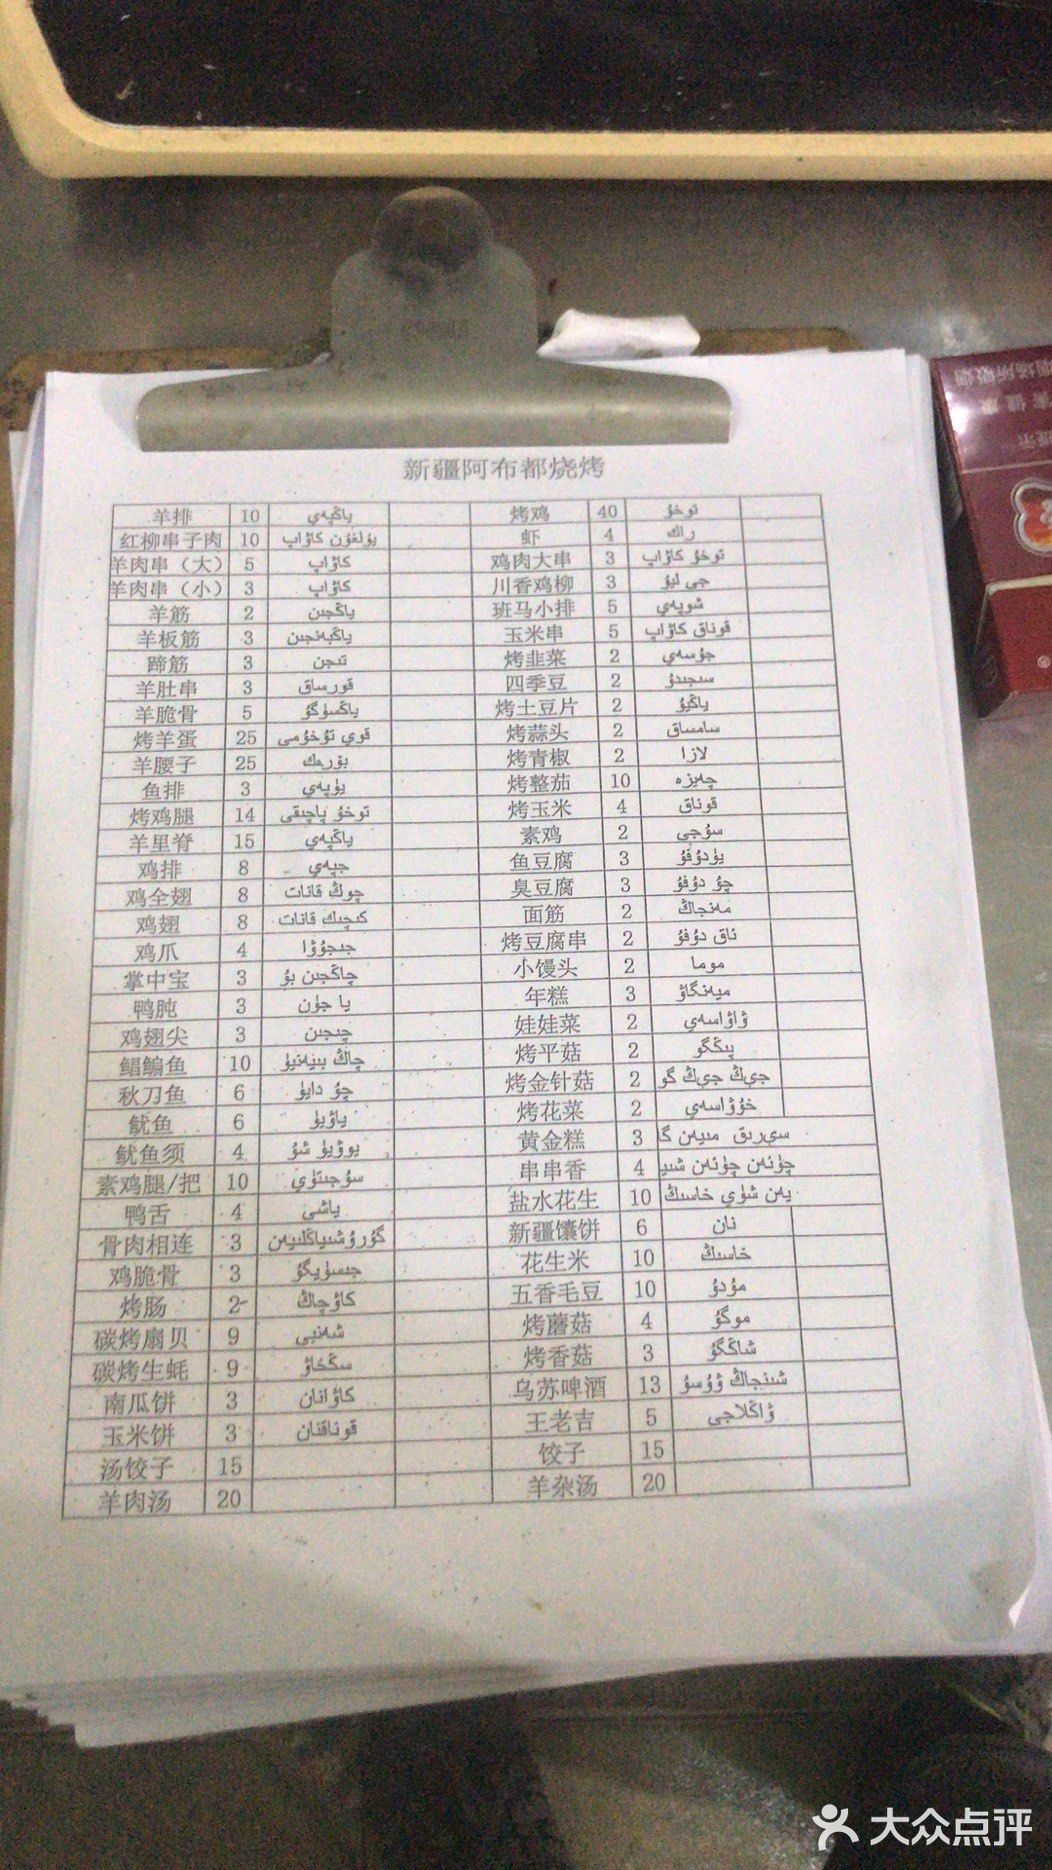 新疆阿布都烧烤
羊排 10 ياڭپەي 烤鸡 40 توخۇ
红柳串子肉 10 يۇلغۇن كاۋاپ 虾 4 راك
羊肉串（大） 5 كاۋاپ 鸡肉大串 3 توخۇ كاۋاپ
羊肉串（小） 3 كاۋاپ 川香鸡柳 3 جى ليۇ
羊筋 2 ياڭجىن 班马小排 5 شوپەي
羊板筋 3 ياڭبەنجىن 玉米串 5 قوناق كاۋاپ
蹄筋 3 تىجن 烤韭菜 2 جۇسەي
羊肚串 3 قورساق 四季豆 2 سىجىدۇ
羊脆骨 5 ياڭسۈگۇ 烤土豆片 2 ياڭيۇ
烤羊蛋 25 قوي تۇخۇمى 烤蒜头 2 سامساق
羊腰子 25 بۆرەك 烤青椒 2 لازا
鱼排 3 يۈپەي 烤整茄 10 چەيزە
烤鸡腿 14 توخۇ پاچىقى 烤玉米 4 قوناق
羊里脊 15 ياڭپەي 素鸡 2 سۇجى
鸡排 8 جپەي 鱼豆腐 3 يۈدۇفۇ
鸡全翅 8 چوڭ قانات 臭豆腐 3 چۇ دۇفۇ
鸡翅 8 كىچىك قانات 面筋 2 مەنجاڭ
鸡爪 4 جىجۇۋا 烤豆腐串 2 ئاق دۇفۇ
掌中宝 3 جاڭجىن بۇ 小馒头 2 موما
鸭肫 3 يا جۈن 年糕 3 ميەنگاۋ
鸡翅尖 3 چىجىن 娃娃菜 2 ۋاۋاسەي
鲳鳊鱼 10 چاڭ بىيەنيۈ 烤平菇 2 پىڭگو
秋刀鱼 6 چۇ دايۈ 烤金针菇 2 جىڭ جىڭ گو
鱿鱼 6 ياۋيۈ 烤花菜 2 خۇۋاسەي
鱿鱼须 4 يوۋيۈ شۇ 黄金糕 3 سىرىق مىيەن گا
素鸡腿/把 10 سۇجىتۈي 串串香 4 چۈنەن چۈنەن شىيا
鸭舌 4 ياشى 盐水花生 10 يەن شۈي خاسىڭ
骨肉相连 3 گۇرۇشىياڭلىيەن 新疆馕饼 6 نان
鸡脆骨 3 جىسۈيگۇ 花生米 10 خاسىڭ
烤肠 2 كاۋچاڭ 五香毛豆 10 مۇدۇ
碳烤扇贝 9 شەنبى 烤蘑菇 4 موگۇ
碳烤生蚝 9 سىڭخاۋ 烤香菇 3 شاڭگۇ
南瓜饼 3 كاۋانان 乌苏啤酒 13 شىنجاڭ ۋۇسۇ
玉米饼 3 قوناقنان 王老吉 5 ۋاڭلاجى
汤饺子 15 饺子 15
羊肉汤 20 羊杂汤 20
大众点评